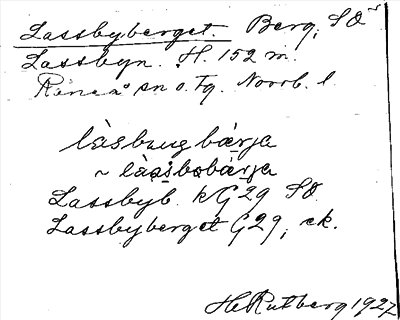 Lassbyberget. Berg, SO
Lassbyn. H. 152 m.
Råneå sn o. Tg. Norrb. l.
làsbyŋbàrja
~ làsbobàrja
Lassbyb. kG29 SO.
Lassbyberget G29, ek.
H Rutberg 1927